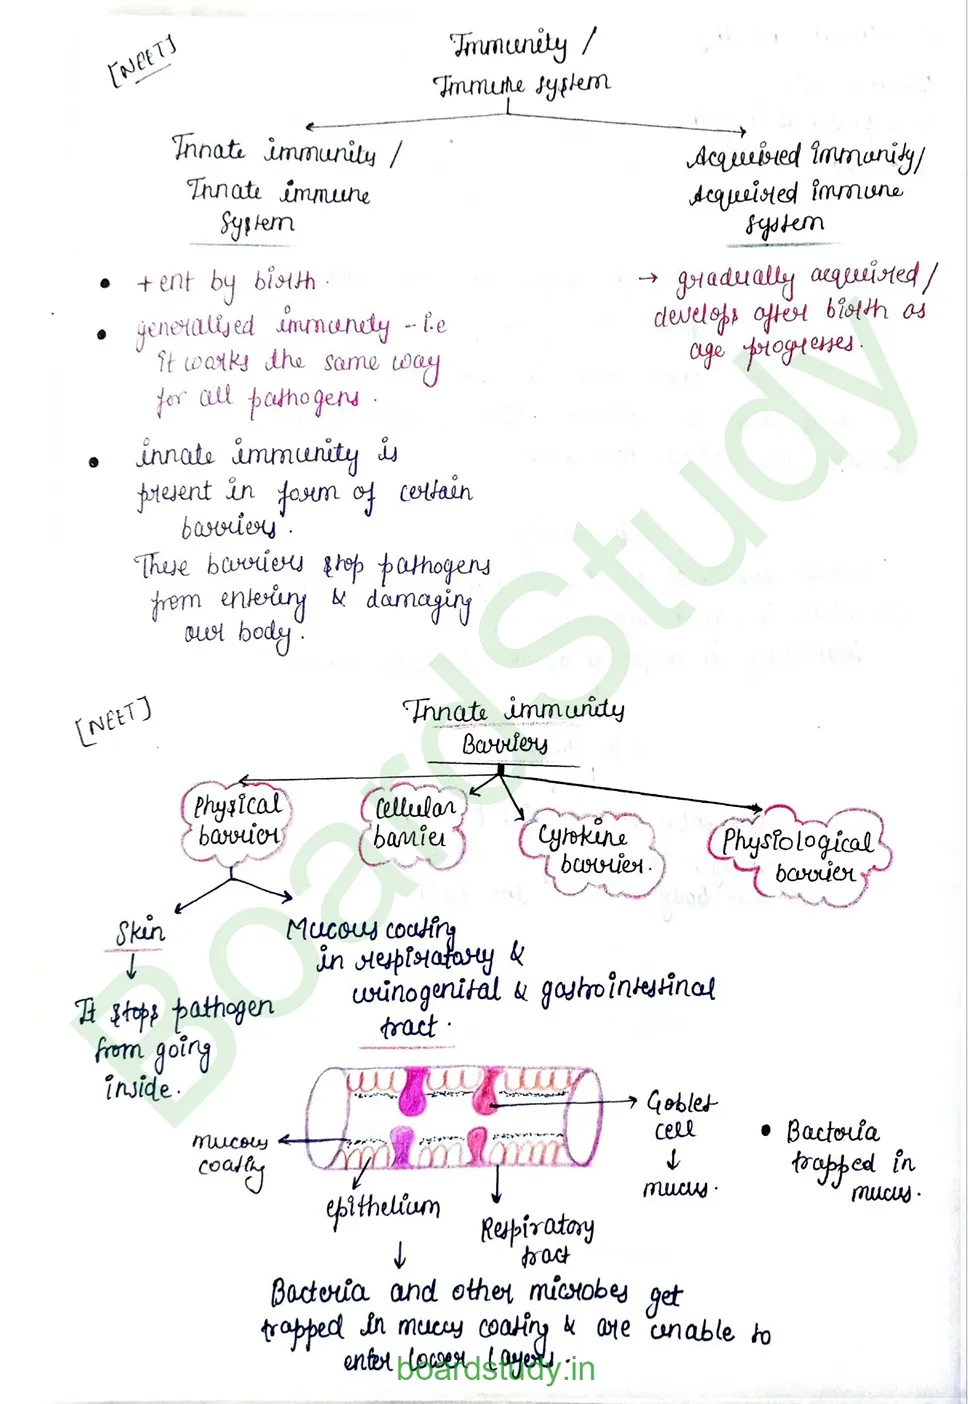 [NEET]
Immunity /
Immune system
Innate immunity /
Innate immune
System
Acquired immunity/
Acquired immune
system
• +ent by birth.
• generalised immunity - i.e
it works the same way
for all pathogens.
• innate immunity is
present in form of certain
barriers.
These barriers stop pathogens
from entering & damaging
our body.
→ gradually acquired /
develops after birth as
age progresses.
[NEET]
Innate immunity
Barriers
Physical
barrier
Cellular
barrier
Cytokine
barrier.
Physiological
barrier
Skin
It stops pathogen
from going
inside.
Mucous coating
in respiratory &
urinogenital & gastrointestinal
tract.
mucous
coating
epithelium
Respiratory
tract
Goblet
cell
mucus.
• Bacteria
trapped in
mucus.
Bacteria and other microbes get
trapped in mucus coating & are unable to
enter lower layers.
BoardStudy
boardstudy.in